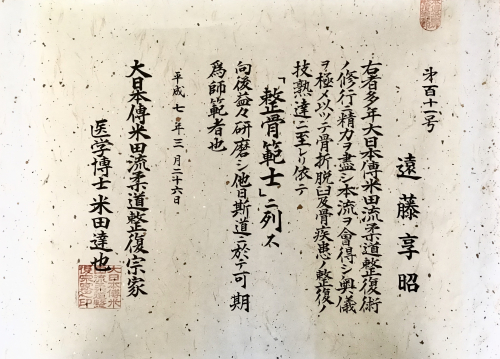 第百十一号
遠藤享昭
右者多年大日本傳米田流柔道整復術
ノ修行ニ精力ヲ盡シ本流ヲ會得シ奥儀
ヲ極メ以ッテ骨折脱臼及骨疾患ノ整復ノ
技熟達ニ至レリ依テ
「整骨範士」ニ列ス
向後益々研磨シ他日斯道ニ於テ可期
為師範者也
平成七年三月二十六日
大日本傳米田流柔道整復宗家
医学博士 米田達也